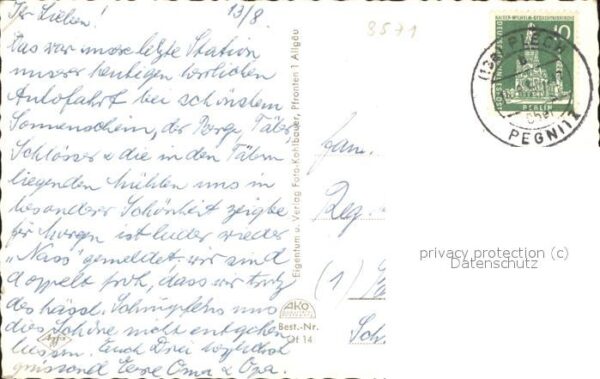 Ihr Lieben! 13/8.
Das war unsre letzte Station
unserer heutigen herrlichen
Autofahrt bei schönstem
Sonnenschein, der Berge, Täler,
Schlösser & die in den Tälern
liegenden Mühlen uns in
besonderer Schönheit zeigte
für morgen ist leider wieder
„Nass" gemeldet. wir sind
doppelt froh, dass wir trotz
des hässl. Schnupfens uns
dies Schöne nicht entgehen
liessen. Euch Drei
Eure Oma & Opa.
8571
Eigentum u. Verlag Foto-Kohlbauer, Pfronten 1 Allgäu
AKO
Best.-Nr.
Of 14
Agfa
Fam.
Reg.-
(1)
10
BERLIN
(13a) PLECH
PEGNITZ
privacy protection (c)
Datenschutz